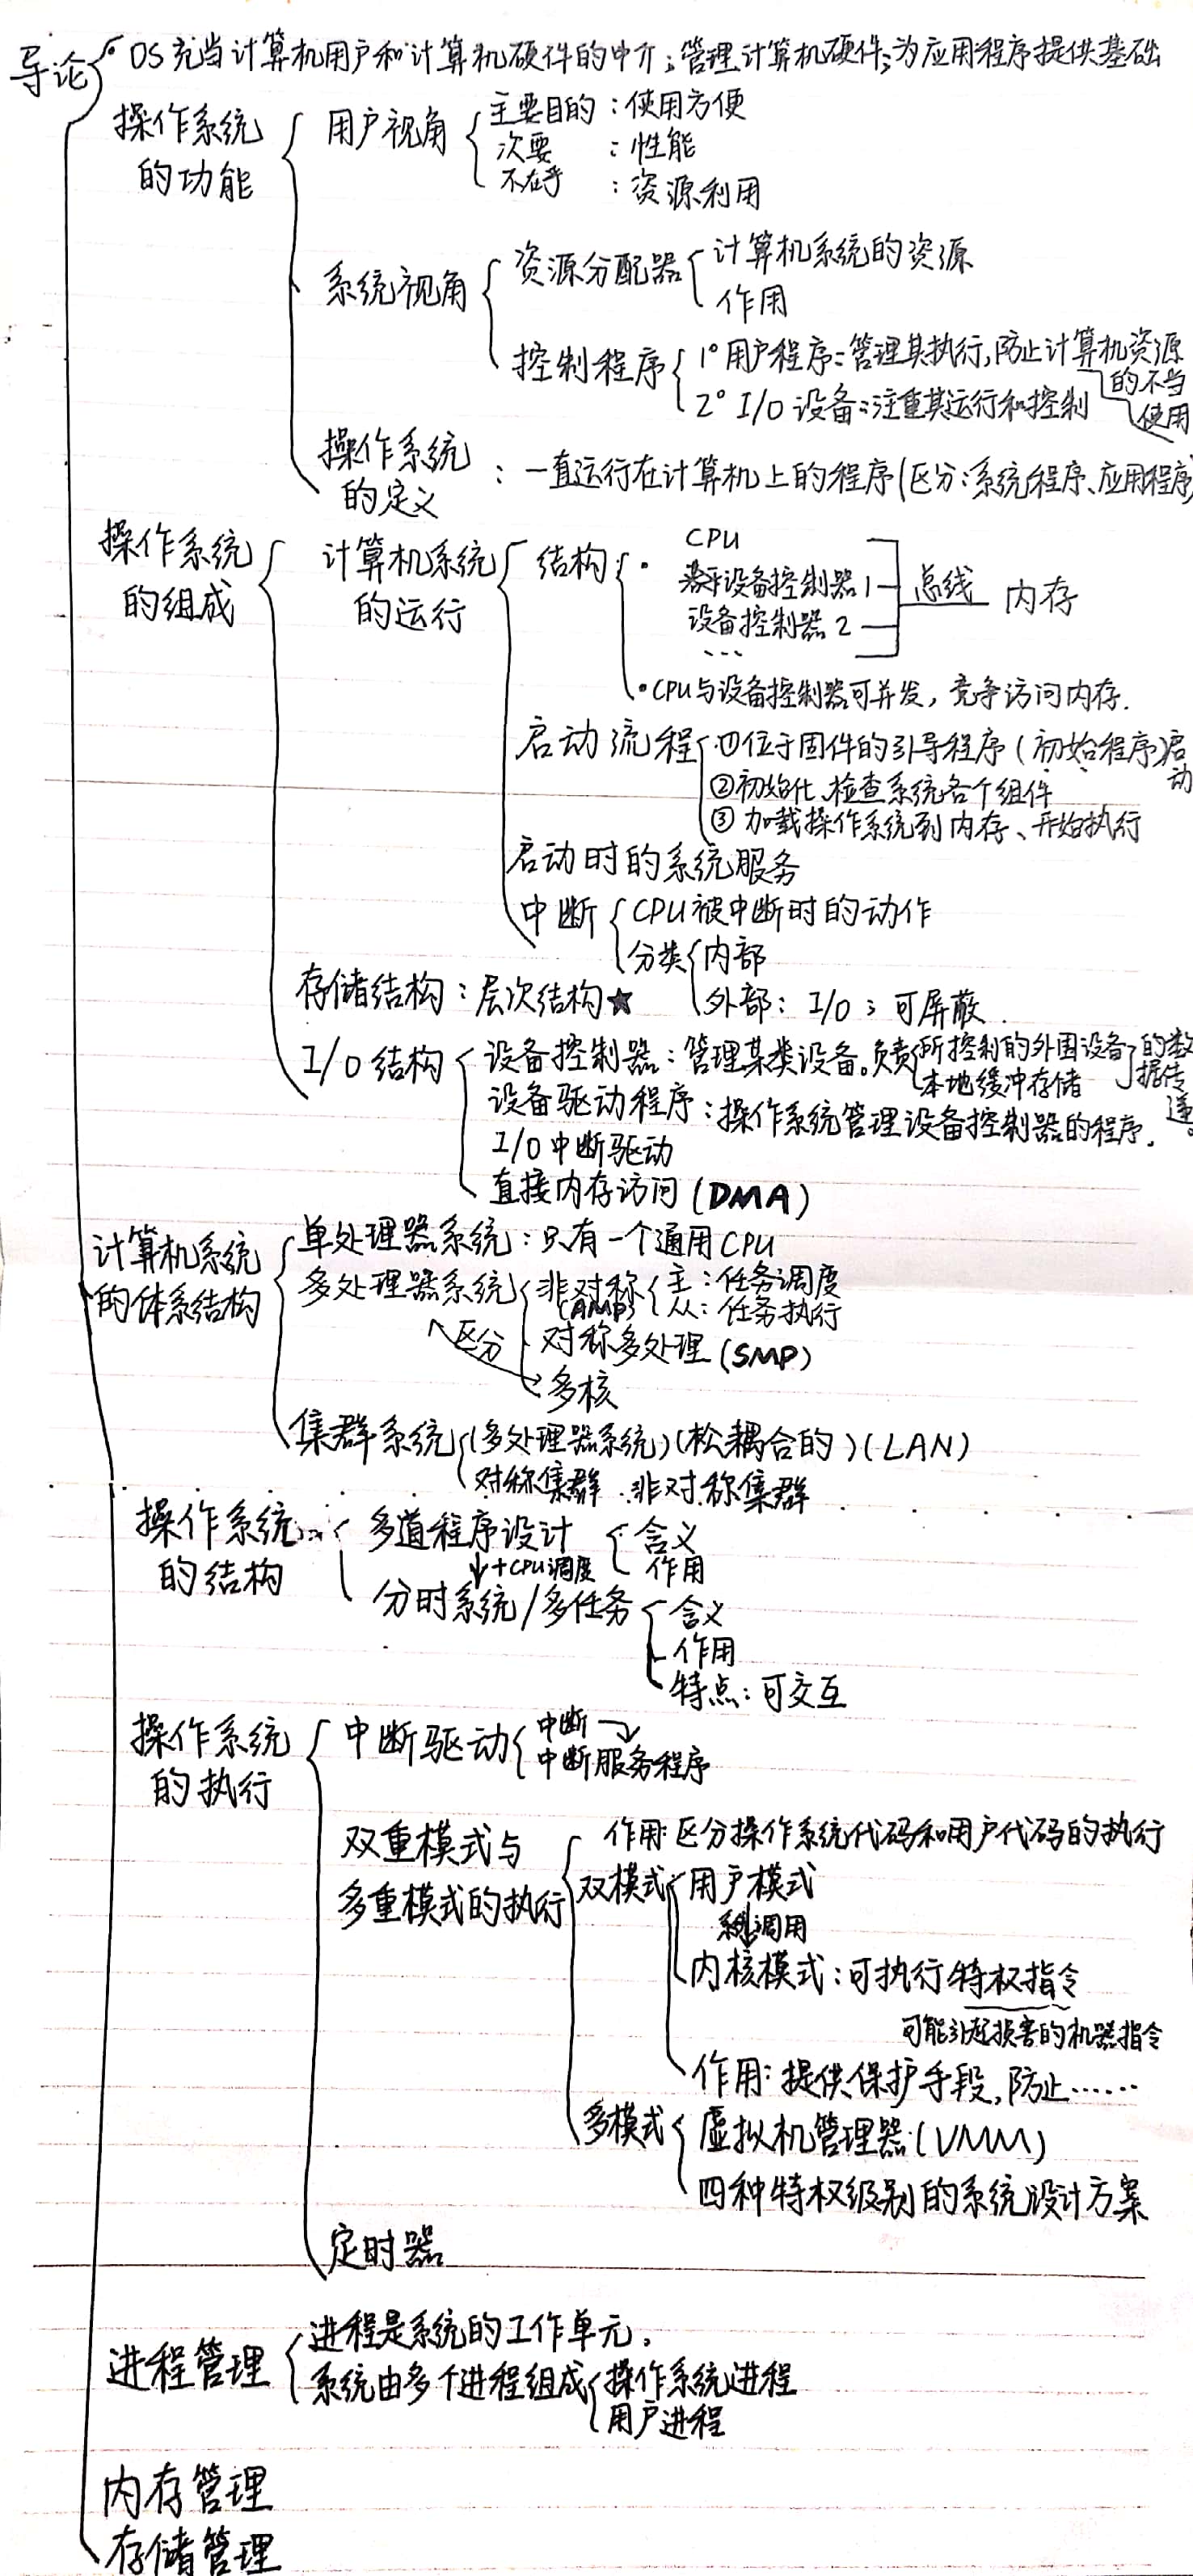 导论
OS充当计算机用户和计算机硬件的中介;管理计算机硬件;为应用程序提供基础
操作系统的功能
用户视角
主要目的:使用方便
次要:性能
不在乎:资源利用
系统视角
资源分配器
计算机系统的资源
作用
控制程序
1° 用户程序:管理其执行,防止计算机资源的不当使用
2° I/O设备:注重其运行和控制
操作系统的定义:一直运行在计算机上的程序(区分:系统程序、应用程序
操作系统的组成
计算机系统的运行
结构
CPU
设备控制器1
设备控制器2
...
总线 内存
CPU与设备控制器可并发,竞争访问内存.
启动流程
①位于固件的引导程序(初始程序)启动
②初始化、检查系统各个组件
③加载操作系统到内存、开始执行
启动时的系统服务
中断
CPU被中断时的动作
分类
内部
外部:I/O;可屏蔽.
存储结构:层次结构★
I/O结构
设备控制器:管理某类设备。负责所控制的外围设备 本地缓冲存储 的数据传递。
设备驱动程序:操作系统管理设备控制器的程序.
I/O中断驱动
直接内存访问(DMA)
计算机系统的体系结构
单处理器系统:只有一个通用CPU
多处理器系统
非对称(AMP)
主:任务调度
从:任务执行
对称多处理(SMP)
区分
多核
集群系统
(多处理器系统)(松耦合的)(LAN)
对称集群 非对称集群
操作系统的结构
多道程序设计
含义
作用
↓+CPU调度
分时系统/多任务
含义
作用
特点:可交互
操作系统的执行
中断驱动
中断
中断服务程序
双重模式与多重模式的执行
作用:区分操作系统代码和用户代码的执行
双模式
用户模式
系统调用
内核模式:可执行特权指令
可能引起损害的机器指令
作用:提供保护手段,防止……
多模式
虚拟机管理器(VMM)
四种特权级别的系统设计方案
定时器
进程管理
进程是系统的工作单元.
系统由多个进程组成
操作系统进程
用户进程
内存管理
存储管理